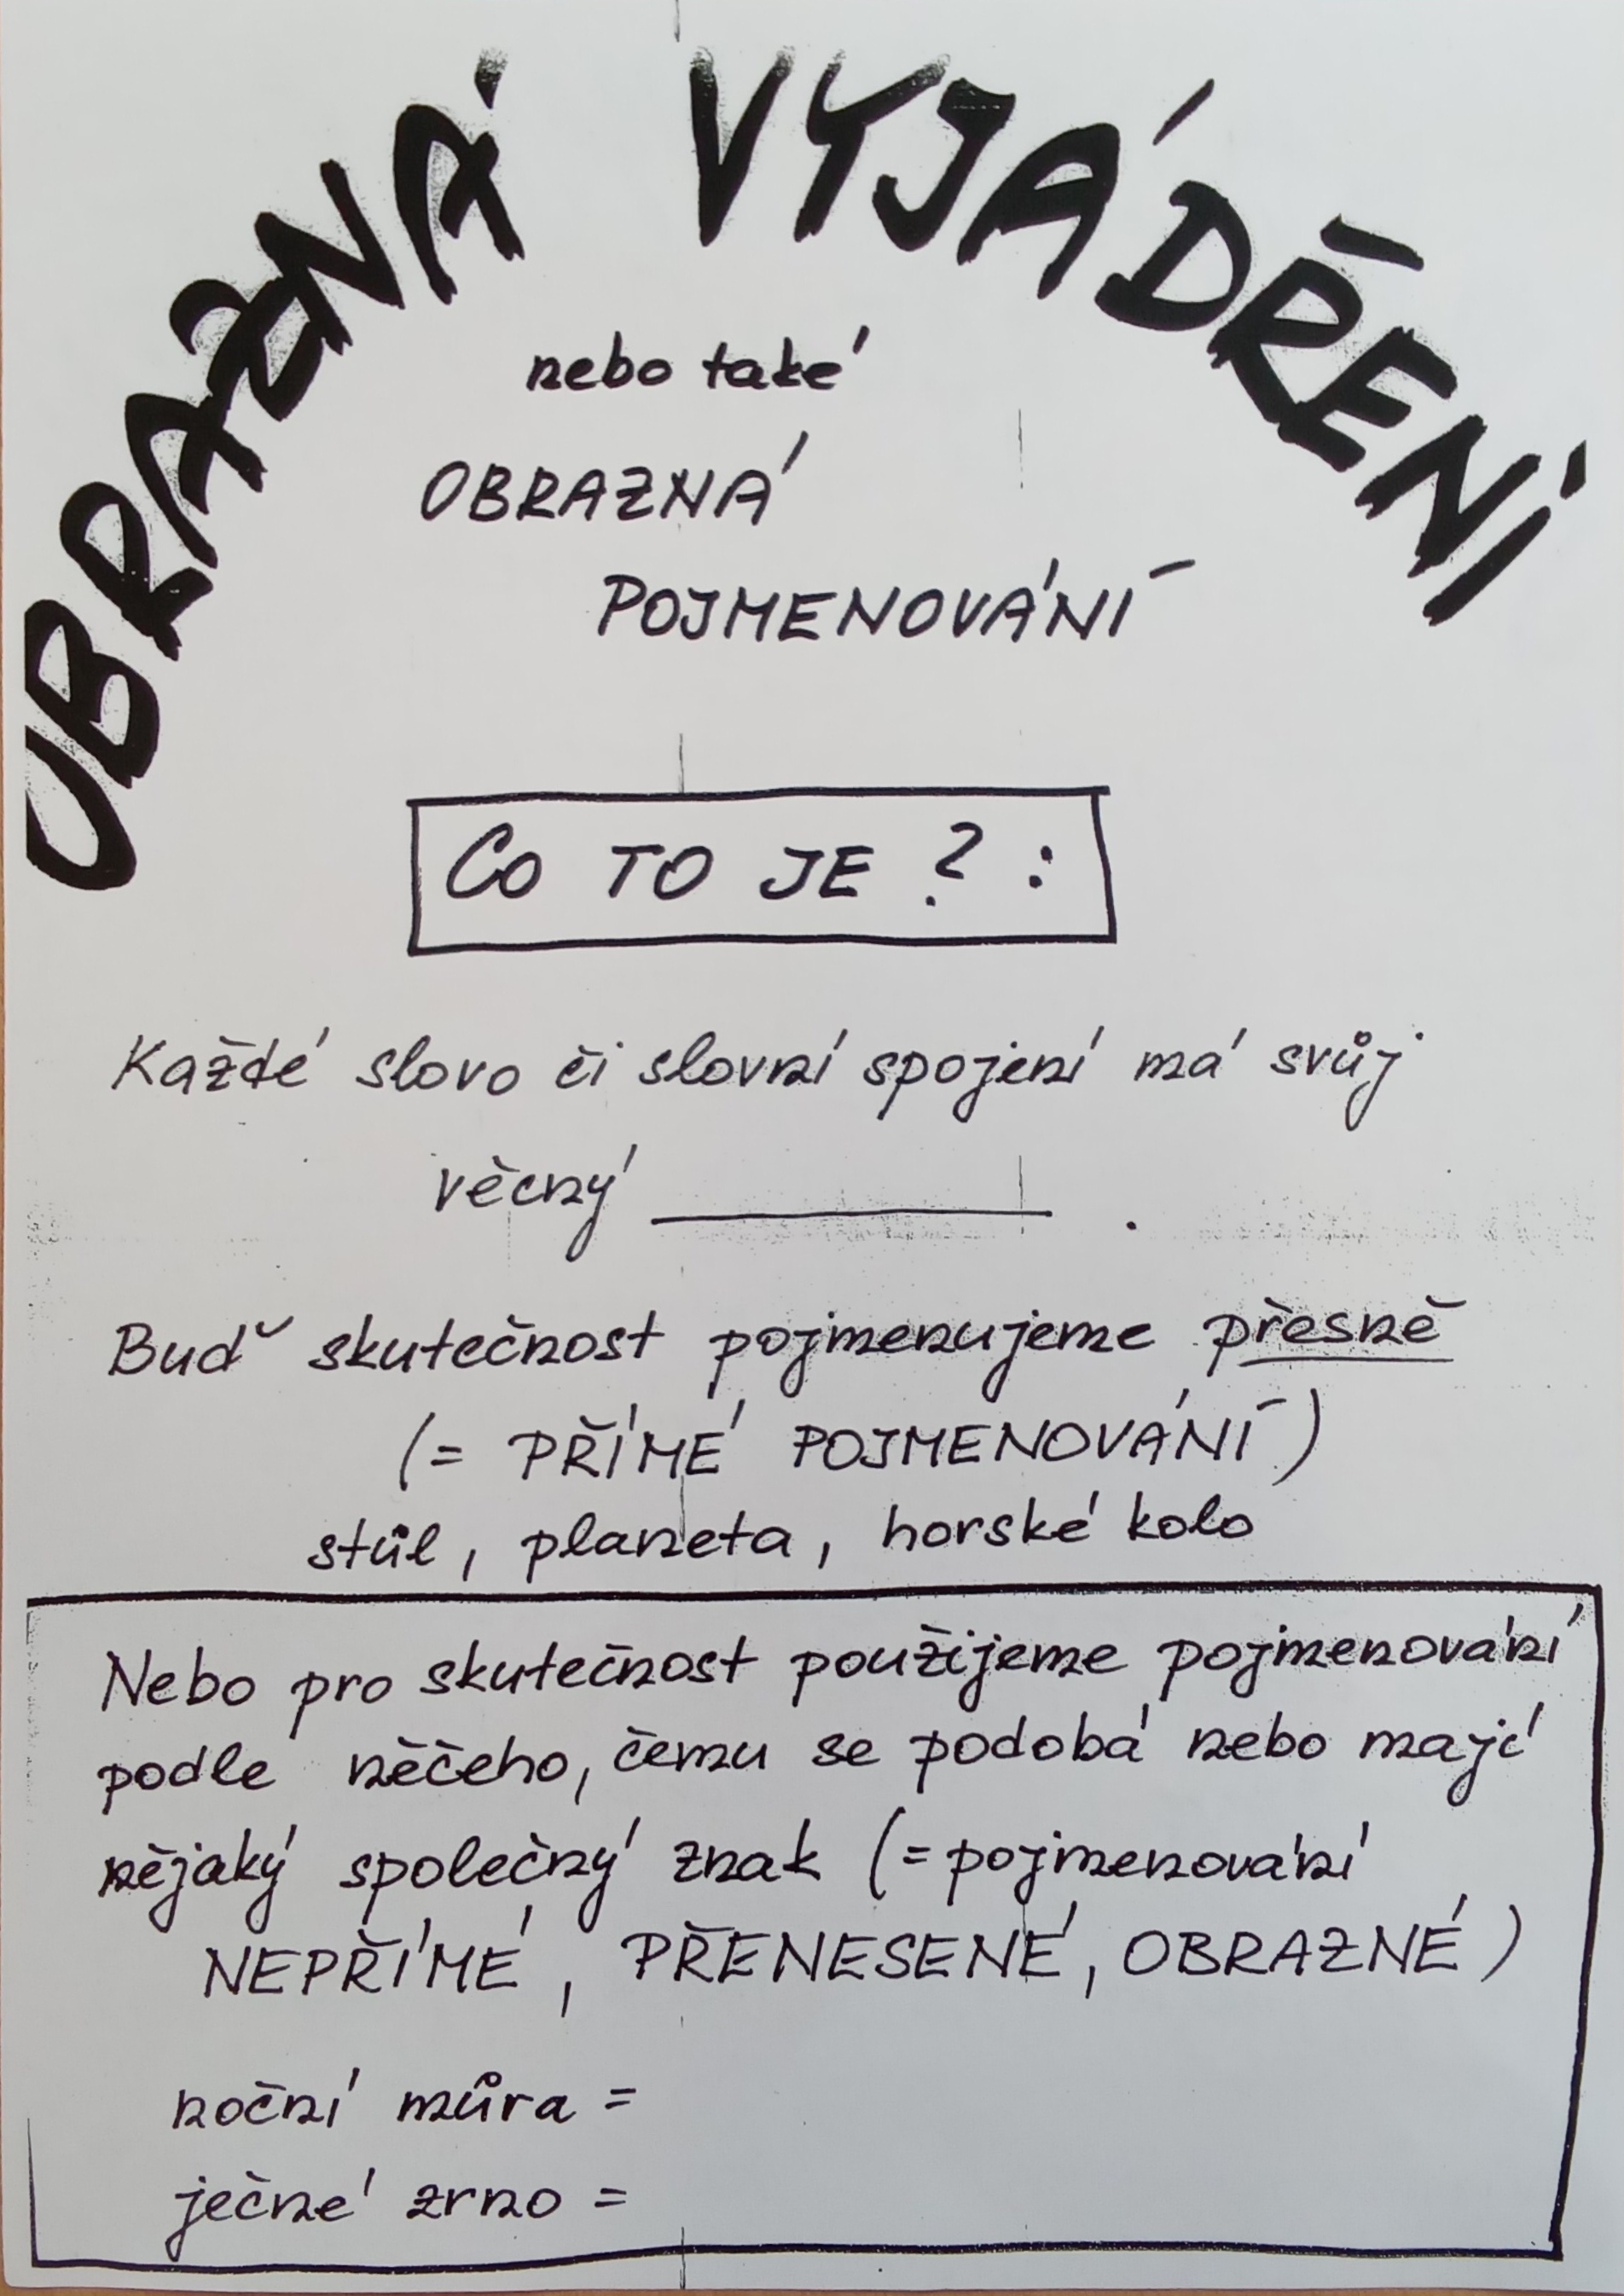 OBRAZNÁ VYJÁDŘENÍ
nebo také
OBRAZNÁ
POJMENOVÁNÍ
CO TO JE ? :
Každé slovo či slovní spojení má svůj
věcný __________ .
Buď skutečnost pojmenujeme přesně
(= PŘÍMÉ POJMENOVÁNÍ)
stůl, planeta, horské kolo
Nebo pro skutečnost použijeme pojmenování
podle něčeho, čemu se podobá nebo mají
nějaký společný znak (=pojmenování
NEPŘÍMÉ, PŘENESENÉ, OBRAZNÉ)
noční můra =
ječné zrno =